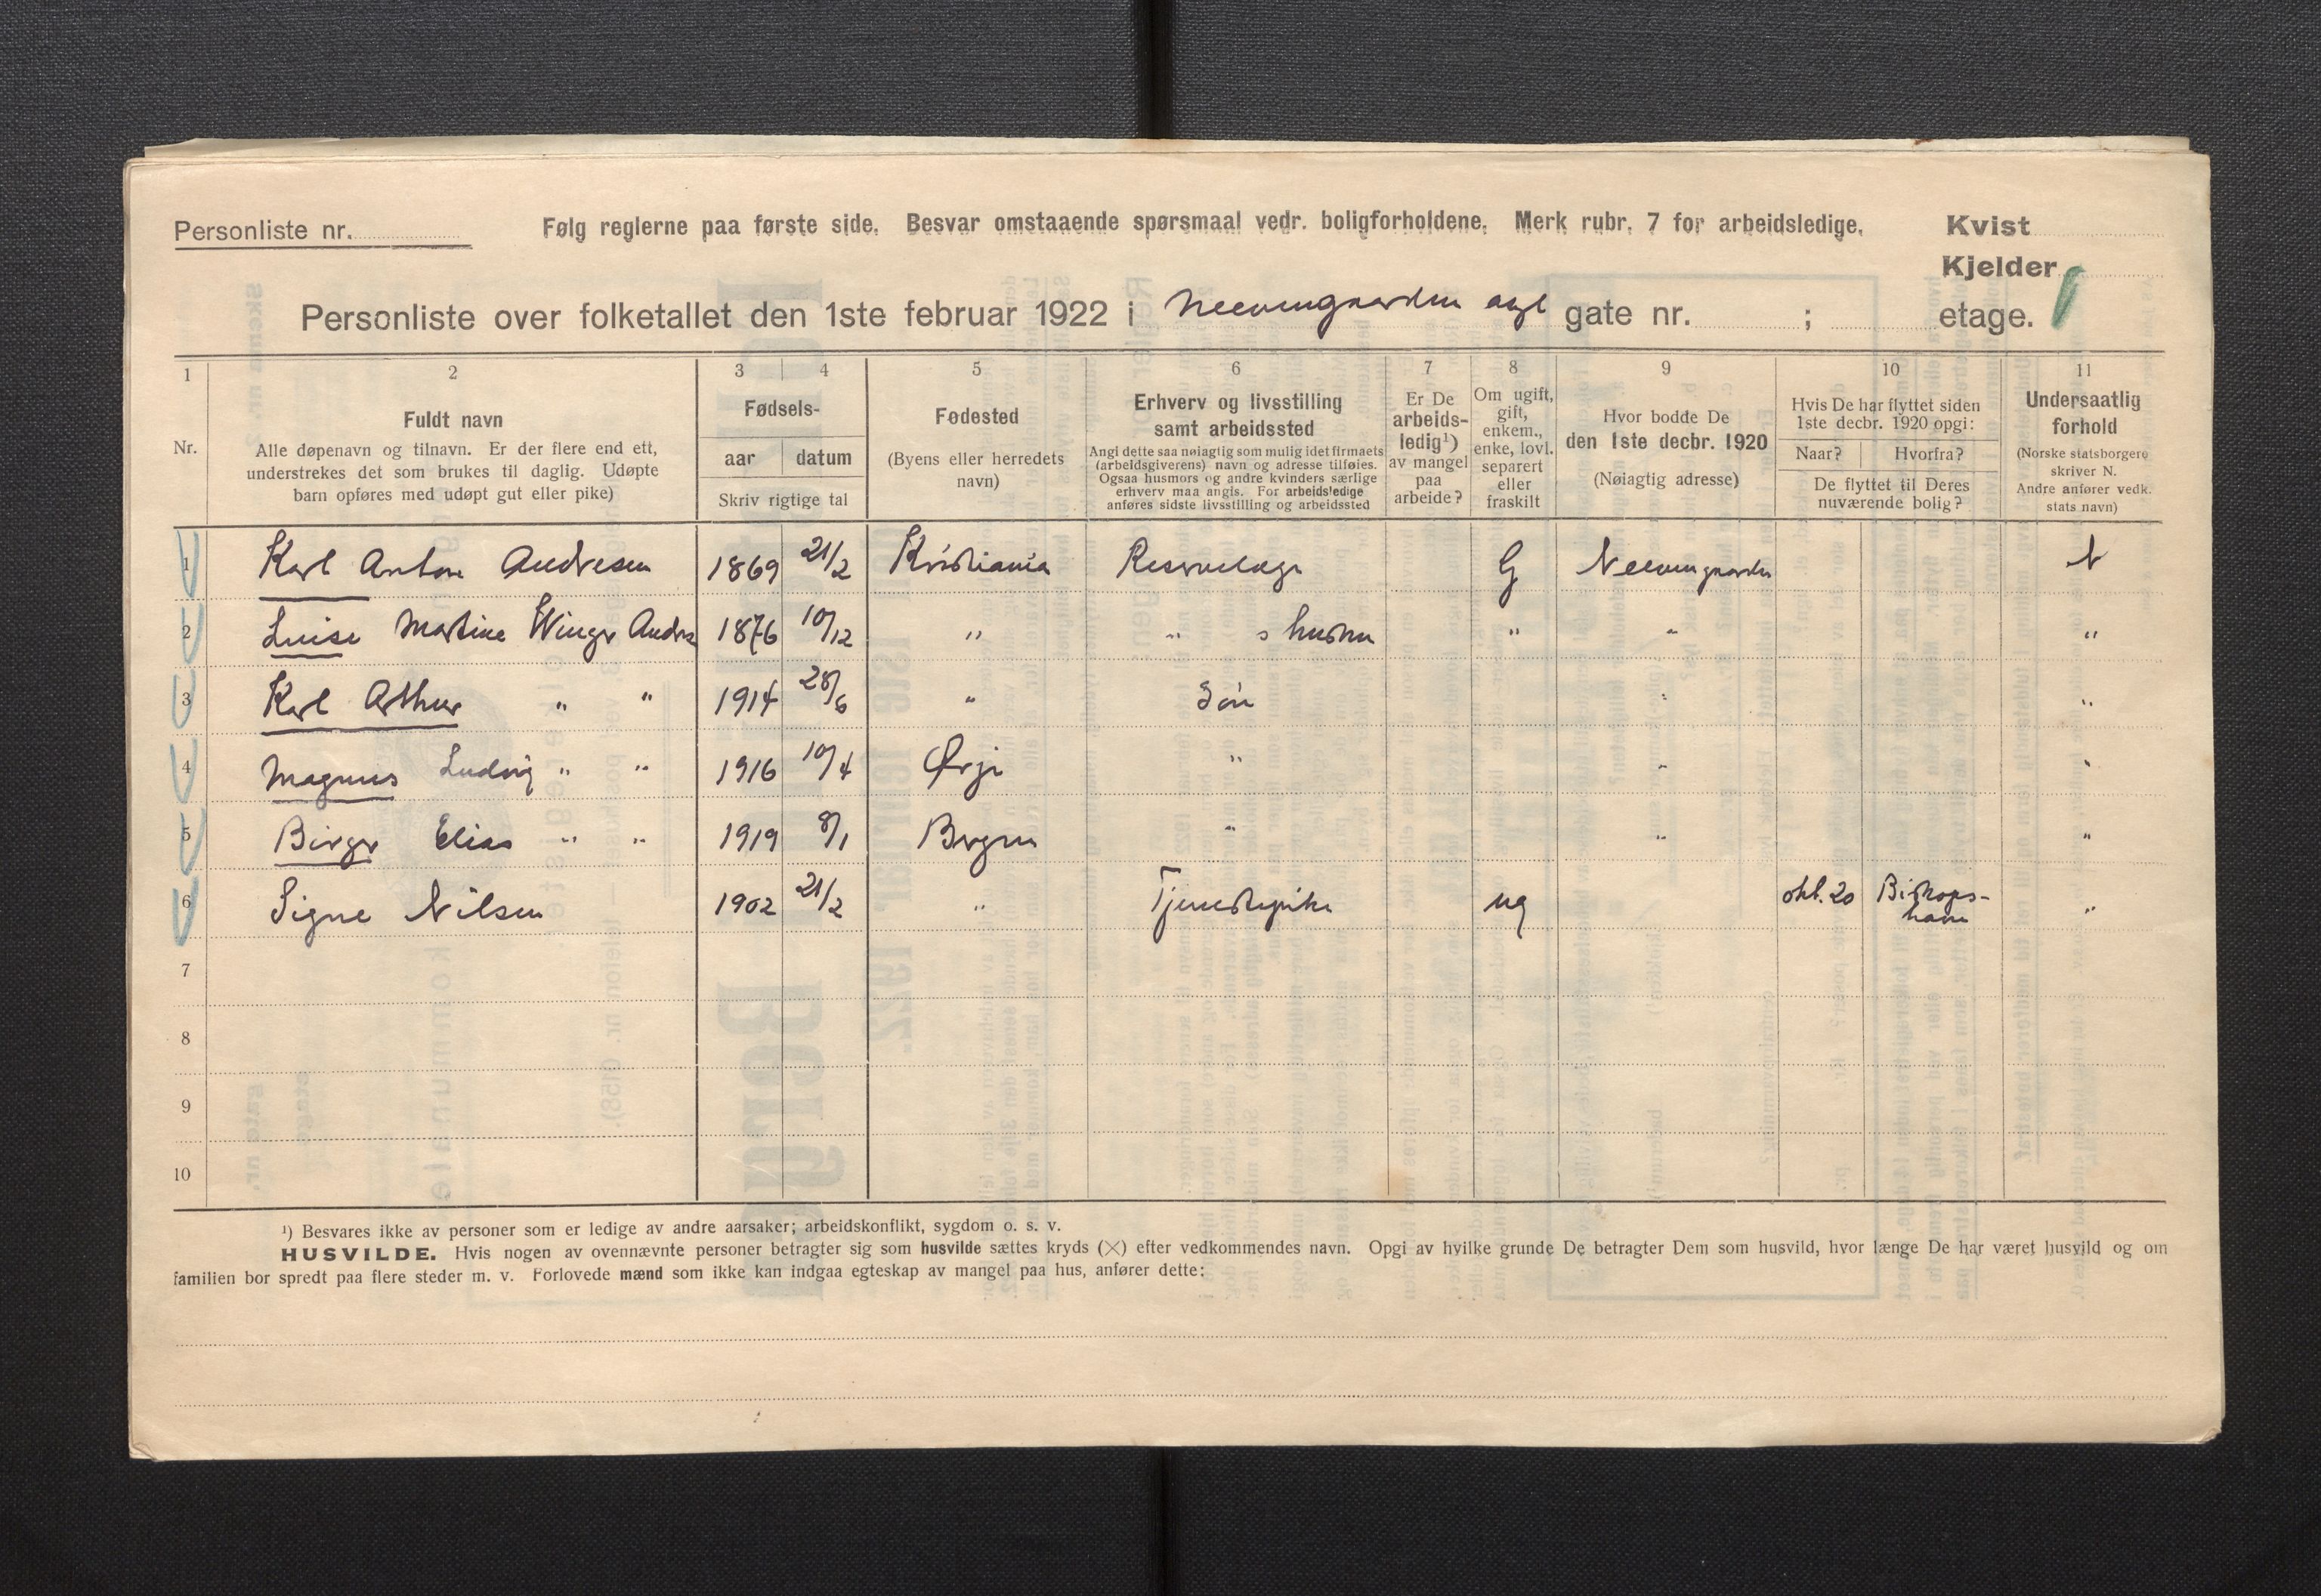 Personliste nr.
Følg reglerne paa første side. Besvar omstaaende spørsmaal vedr. boligforholdene. Merk rubr. 7 for arbeidsledige.
Kvist
Kjelder
Personliste over folketallet den 1ste februar 1922 i Neevengaarden asyl gate nr. ; etage.
1 2 3 4 5 6 7 8 9 10 11
Nr.
Fuldt navn
Alle døpenavn og tilnavn. Er der flere end ett,
understrekes det som brukes til daglig. Udøpte
barn opføres med udøpt gut eller pike)
Fødsels-
aar datum
Skriv rigtige tal
Fødested
(Byens eller herredets
navn)
Erhverv og livsstilling
samt arbeidssted
Angi dette saa nøiagtig som mulig idet firmaets
(arbeidsgiverens) navn og adresse tilføies.
Ogsaa husmors og andre kvinders særlige
erhverv maa angis. For arbeidsledige
anføres sidste livsstilling og arbeidssted
Er De
arbeids-
ledig¹)
av mangel
paa
arbeide?
Om ugift,
gift,
enkem.,
enke, lovl.
separert
eller
fraskilt
Hvor bodde De
den 1ste decbr. 1920
(Nøiagtig adresse)
Hvis De har flyttet siden
1ste decbr. 1920 opgi:
Naar? Hvorfra?
De flyttet til Deres
nuværende bolig?
Undersaatlig
forhold
(Norske statsborgere
skriver N.
Andre anfører vedk.
stats navn)
1 Karl Anton Andresen 1869 21/2 Kristiania Reservelæge G Neevengaarden N
2 Luise Martine Winge Andre 1876 10/12 " " s hustru " " "
3 Karl Arthur " " 1914 28/6 " Søn " "
4 Magnus Ludvig " " 1916 10/4 Ørje " " "
5 Birger Elias " " 1919 8/1 Bergen " " "
6 Signe Nilsen 1902 21/2 " Tjenestepike ug okt. 20 Biskops-
havn "
7
8
9
10
¹) Besvares ikke av personer som er ledige av andre aarsaker; arbeidskonflikt, sygdom o. s. v.
HUSVILDE. Hvis nogen av ovennævnte personer betragter sig som husvilde sættes kryds (×) efter vedkommendes navn. Opgi av hvilke grunde De betragter Dem som husvild, hvor længe De har været husvild og om
familien bor spredt paa flere steder m. v. Forlovede mænd som ikke kan indgaa egteskap av mangel paa hus, anfører dette: